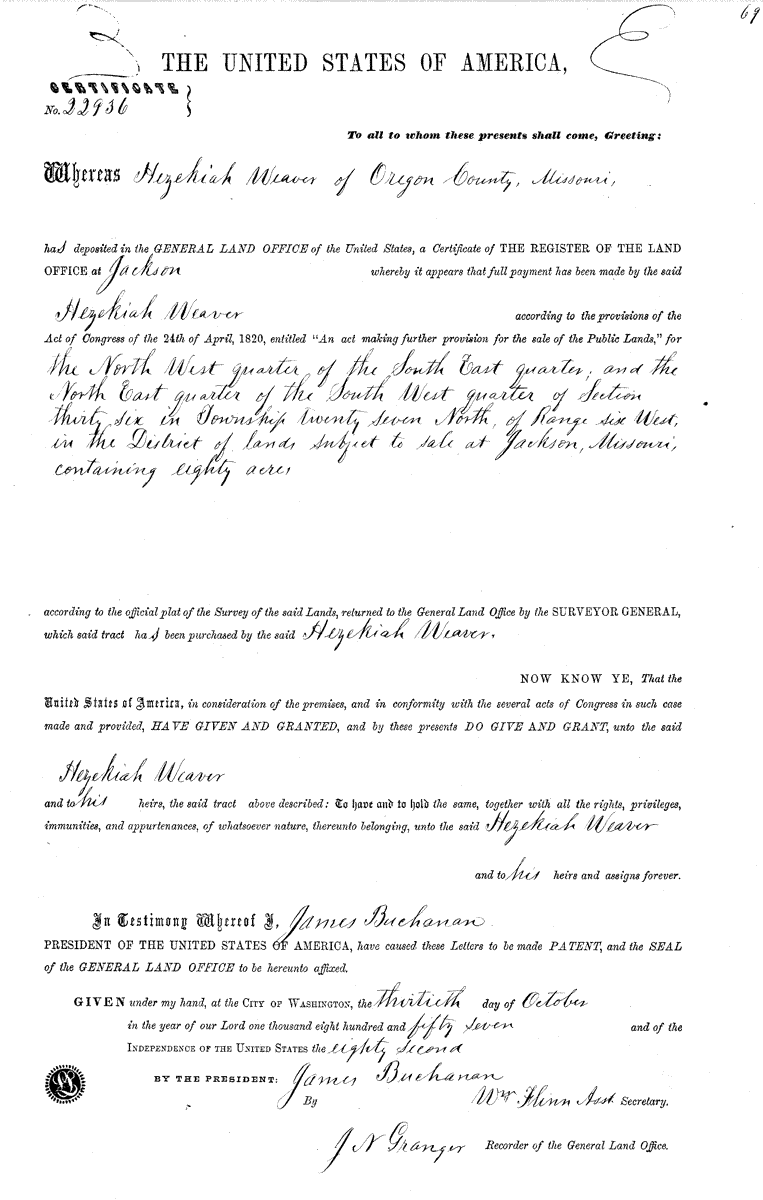 69
THE UNITED STATES OF AMERICA,
CERTIFICATE
No. 22936
To all to whom these presents shall come, Greeting:
Whereas Hezekiah Weaver of Oregon County, Missouri,
has deposited in the GENERAL LAND OFFICE of the United States, a Certificate of THE REGISTER OF THE LAND
OFFICE at Jackson whereby it appears that full payment has been made by the said
Hezekiah Weaver according to the provisions of the
Act of Congress of the 24th of April, 1820, entitled “An act making further provision for the sale of the Public Lands,” for
the North West quarter of the South East quarter, and the
North East quarter of the South West quarter of Section
thirty six in Township twenty seven North, of Range six West,
in the District of lands subject to sale at Jackson, Missouri,
containing eighty acres
according to the official plat of the Survey of the said Lands, returned to the General Land Office by the SURVEYOR GENERAL,
which said tract has been purchased by the said Hezekiah Weaver.
NOW KNOW YE, That the
United States of America, in consideration of the premises, and in conformity with the several acts of Congress in such case
made and provided, HAVE GIVEN AND GRANTED, and by these presents DO GIVE AND GRANT, unto the said
Hezekiah Weaver
and to his heirs, the said tract above described: To have and to hold the same, together with all the rights, privileges,
immunities, and appurtenances, of whatsoever nature, thereunto belonging, unto the said Hezekiah Weaver
and to his heirs and assigns forever.
In Testimony Whereof I, James Buchanan
PRESIDENT OF THE UNITED STATES OF AMERICA, have caused these Letters to be made PATENT, and the SEAL
of the GENERAL LAND OFFICE to be hereunto affixed.
GIVEN under my hand, at the CITY OF WASHINGTON, the thirtieth day of October
in the year of our Lord one thousand eight hundred and fifty seven and of the
INDEPENDENCE OF THE UNITED STATES the eighty second
BY THE PRESIDENT: James Buchanan
By Wm Flinn Asst. Secretary.
J N Granger Recorder of the General Land Office.